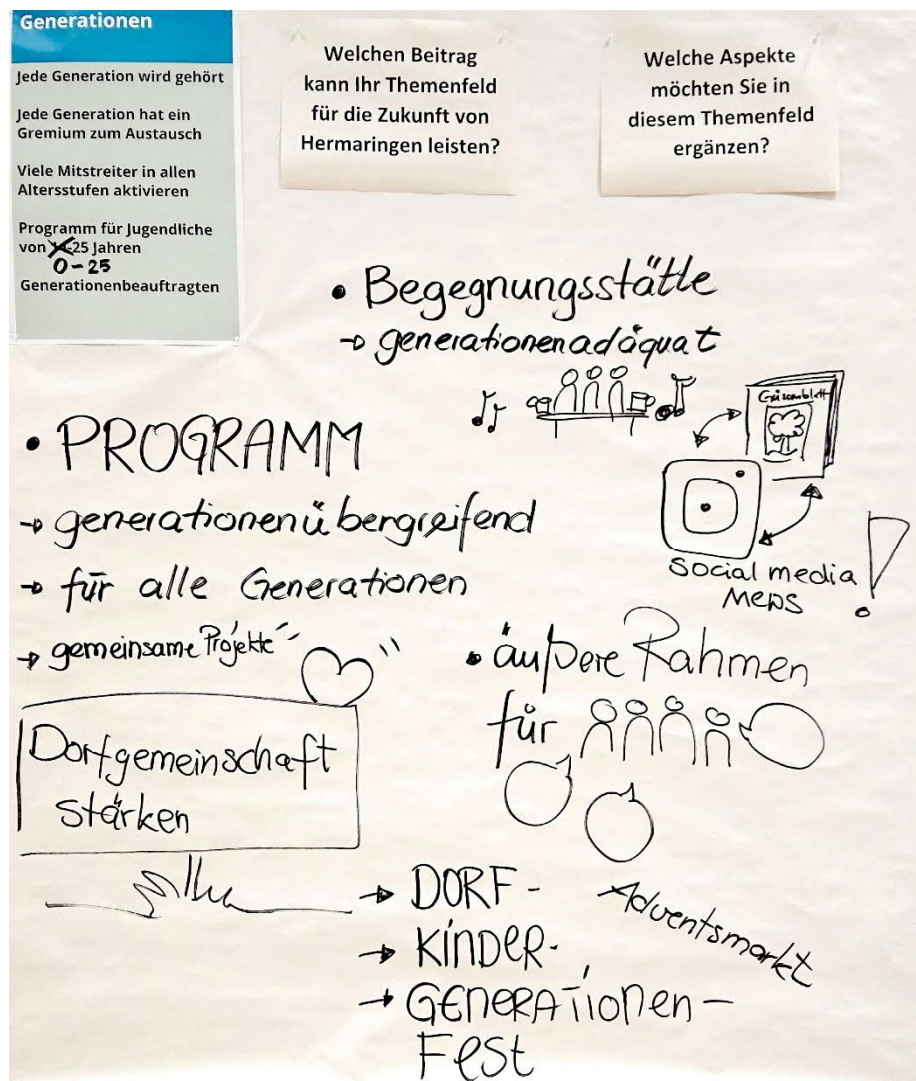 Generationen
Jede Generation wird gehört
Jede Generation hat ein
Gremium zum Austausch
Viele Mitstreiter in allen
Altersstufen aktivieren
Programm für Jugendliche
von 25 Jahren
0-25
Generationenbeauftragten
Welchen Beitrag
kann Ihr Themenfeld
für die Zukunft von
Hermaringen leisten?
Welche Aspekte
möchten Sie in
diesem Themenfeld
ergänzen?
• Begegnungsstätte
→ generationenadäquat
• PROGRAMM
→ generationenübergreifend
→ für alle Generationen
→ gemeinsame Projekte
Dorfgemeinschaft
stärken
Social media
!
• äußere Rahmen
für
→ DORF-
→ KINDER-,
→ GENERATIONEN-
FEST
Adventsmarkt